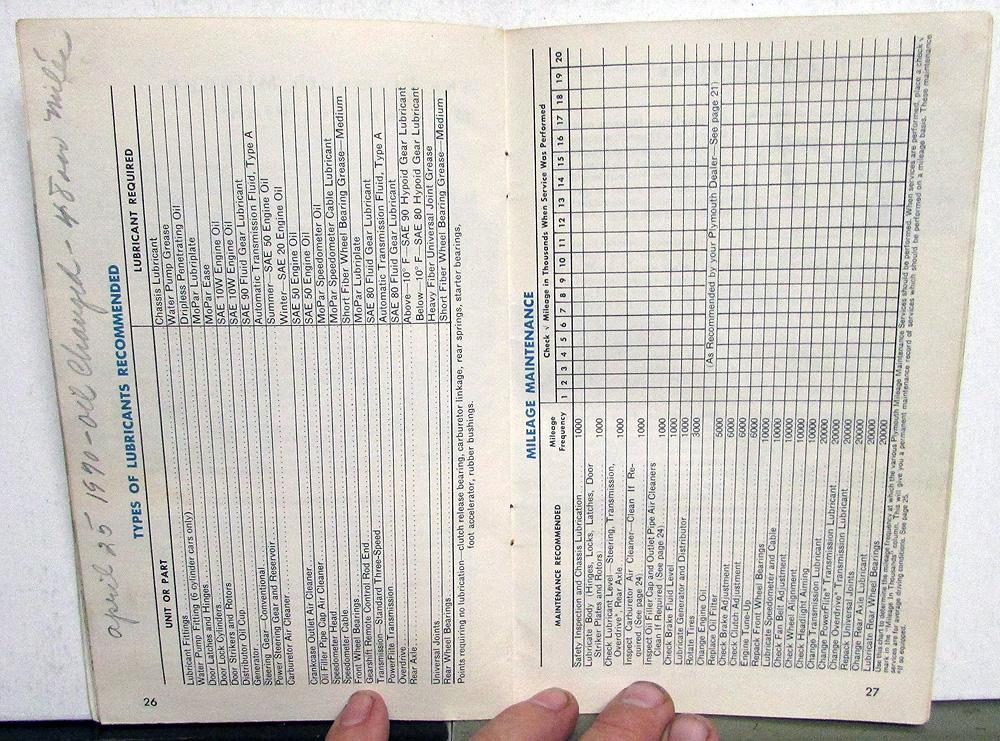 april 25 1990 - oil Changed - 48000 miles
TYPES OF LUBRICANTS RECOMMENDED
UNIT OR PART LUBRICANT REQUIRED
Lubricant Fittings Chassis Lubricant
Water Pump Fitting (6 cylinder cars only) Water Pump Grease
Door Latches and Hinges Dripless Penetrating Oil
Door Lock Cylinders MoPar Lubriplate
Door Strikers and Rotors MoPar Ease
Distributor Oil Cup SAE 10W Engine Oil
Generator SAE 10W Engine Oil
Steering Gear—Conventional SAE 90 Fluid Gear Lubricant
Power Steering Gear and Reservoir Automatic Transmission Fluid, Type A
Carburetor Air Cleaner Summer—SAE 50 Engine Oil
Winter—SAE 20 Engine Oil
Crankcase Outlet Air Cleaner SAE 50 Engine Oil
Oil Filler Pipe Cap Air Cleaner SAE 50 Engine Oil
Speedometer Head MoPar Speedometer Oil
Speedometer Cable MoPar Speedometer Cable Lubricant
Front Wheel Bearings Short Fiber Wheel Bearing Grease—Medium
Gearshift Remote Control Rod End MoPar Lubriplate
Transmission—Standard Three-Speed SAE 80 Fluid Gear Lubricant
PowerFlite Transmission Automatic Transmission Fluid, Type A
Overdrive SAE 80 Fluid Gear Lubricant
Rear Axle Above—10° F—SAE 90 Hypoid Gear Lubricant
Below—10° F—SAE 80 Hypoid Gear Lubricant
Universal Joints Heavy Fiber Universal Joint Grease
Rear Wheel Bearings Short Fiber Wheel Bearing Grease—Medium
Points requiring no lubrication—clutch release bearing, carburetor linkage, rear springs, starter bearings,
foot accelerator, rubber bushings.
26
MILEAGE MAINTENANCE
Check √ Mileage in Thousands When Service Was Performed
MAINTENANCE RECOMMENDED Mileage Frequency 1 2 3 4 5 6 7 8 9 10 11 12 13 14 15 16 17 18 19 20
Safety Inspection and Chassis Lubrication 1000
Lubricate Body (Hinges, Locks, Latches, Door
Striker Plates and Rotors) 1000
Check Lubricant Level—Steering, Transmission,
Overdrive*, Rear Axle 1000
Inspect Carburetor Air Cleaner—Clean If Re-
quired (See page 24) 1000
Inspect Oil Filler Cap and Outlet Pipe Air Cleaners
Clean If Required (See page 24) 1000
Check Brake Fluid Level 1000
Lubricate Generator and Distributor 1000
Rotate Tires 3000
Change Engine Oil (As Recommended by your Plymouth Dealer—See page 21)
Replace Oil Filter 5000
Check Brake Adjustment 6000
Check Clutch Adjustment 6000
Engine Tune-Up 6000
Repack Front Wheel Bearings 10000
Lubricate Speedometer Head and Cable 10000
Check Fan Belt Adjustment 10000
Check Wheel Alignment 10000
Check Headlight Aiming 10000
Change Transmission Lubricant 20000
Change PowerFlite* Transmission Lubricant 20000
Change Overdrive* Transmission Lubricant 20000
Repack Universal Joints 20000
Change Rear Axle Lubricant 20000
Lubricate Rear Wheel Bearings 20000
Use this chart to determine the mileage frequency at which the various Plymouth Mileage Maintenance Services should be performed. When services are performed, place a check √
mark in the "Mileage in Thousands" column. This will give you a permanent maintenance record of services which should be performed on a mileage basis. These maintenance
services are for average driving conditions. See page 25.
*If so equipped.
27